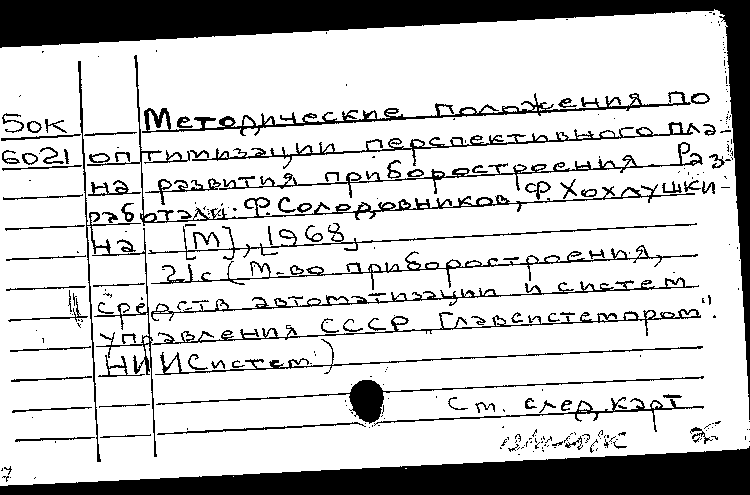 50к Методические положения по
6021 оптимизации перспективного пла-
на развития приборостроения. Раз-
работали: Ф. Солодовников, Ф. Хохлушки-
на. [М], 1968,
21с (М-во приборостроения,
средств автоматизации и систем
управления СССР „Главсистемпром".
НИИСистем)
См. след. карт
7